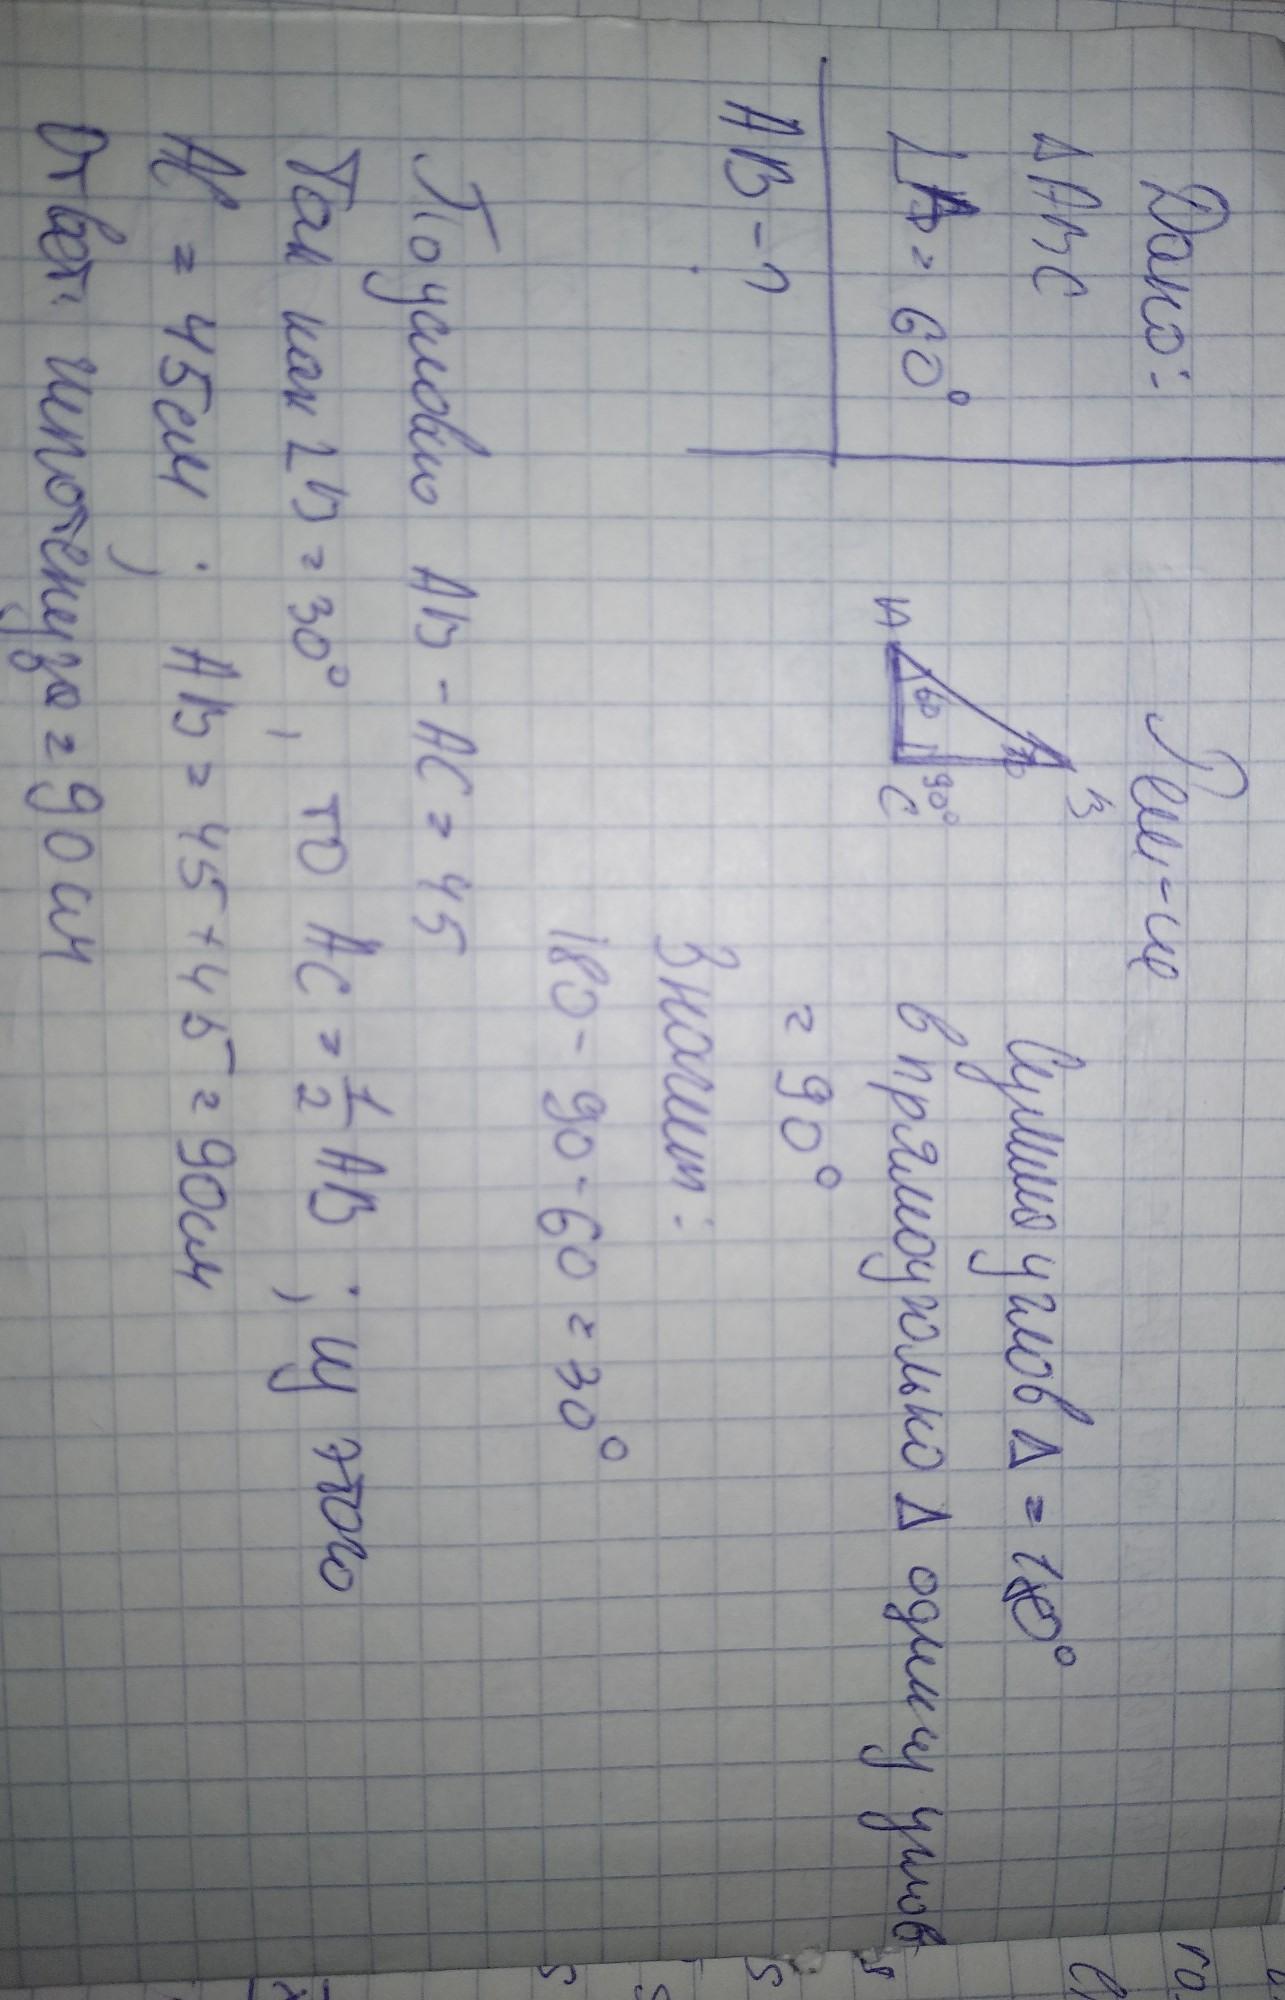 Дано:
Реш-ие
Δ ABC
∠A = 60°
AB - ?
A 60 30 B
90°
C
Сумма углов Δ = 180°
в прямоуголько Δ один из углов
= 90°
Значит:
180 - 90 - 60 = 30°
По условию AB - AC = 45
Так как ∠B = 30°, то AC = 1/2 AB ; из этого
AC = 45см ; AB = 45 + 45 = 90см
Ответ: гипотенуза = 90 см